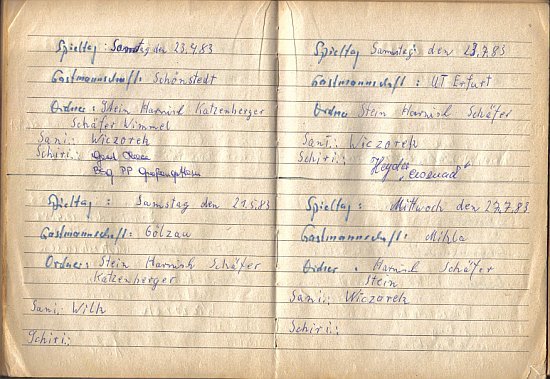 Spieltag: Samstag den 23.4.83
Gastmannschaft: Schönstedt
Ordner: Stein Harnisch Katzenberger
Schäfer Nimmel
Sani: Wiczorek
Schiri:
Spieltag: Samstag den 21.5.83
Gastmannschaft: Gölzau
Ordner: Stein Harnish Schäfer
Katzenberger
Sani: Wilk
Schiri:
Spieltag Samstag den 23.7.83
Gastmannschaft: UT Erfurt
Ordner Stein Harnish Schäfer
Sani: Wiczorek
Schiri:
Spieltag: Mittwoch den 27.7.83
Gastmannschaft: Mihla
Ordner: Harnish Schäfer
Stein
Sani: Wiczorek
Schiri: